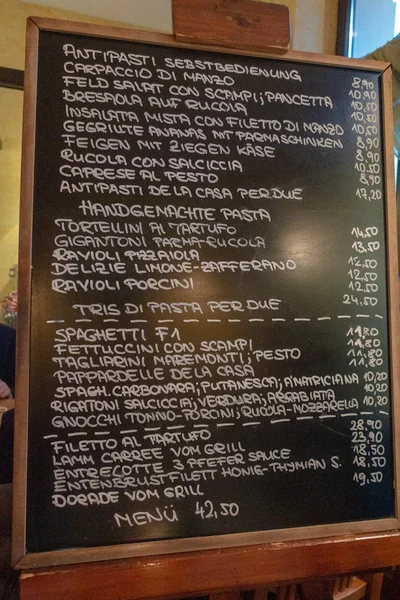 ANTIPASTI SEBSTBEDIENUNG 8,90
CARPACCIO DI MANZO 10,90
FELD SALAT CON SCAMPI; PANCETTA 10,50
BRESAOLA AUF RUCOLA 10,50
INSALATA MISTA CON FILETTO DI MANZO 10,50
GEGRILLTE ANANAS MIT PARMASCHINKEN 8,90
FEIGEN MIT ZIEGEN KÄSE 8,90
RUCOLA CON SALCICCIA 10,50
CAPRESE AL PESTO 8,90
ANTIPASTI DE LA CASA PER DUE 17,20
HANDGEMACHTE PASTA
TORTELLINI AL TARTUFO 14,50
GIGANTONI PARMA-RUCOLA 13,50
RAVIOLI PIZZAIOLA 12,50
DELIZIE LIMONE-ZAFFERANO 12,50
RAVIOLI PORCINI 12,50
TRIS DI PASTA PER DUE 24,50
SPAGHETTI F1 11,80
FETTUCCINI CON SCAMPI 11,80
TAGLIARINI MAREMONTI; PESTO 11,80
PAPPARDELLE DE LA CASA 11,80
SPAGH. CARBONARA; PUTANESCA; AMATRICIANA 10,20
RIGATONI SALCICCIA; VERDURA; ARRABIATA 10,20
GNOCCHI TONNO-PORCINI; RUCOLA-MOZZARELLA 10,20
FILETTO AL TARTUFO 28,90
LAMM CARREE VOM GRILL 23,90
ENTRECOTTE 3 PFEFER SAUCE 18,50
ENTENBRUSTFILETT HONIG-THYMIAN S. 18,50
DORADE VOM GRILL 19,50
MENÜ 42,50